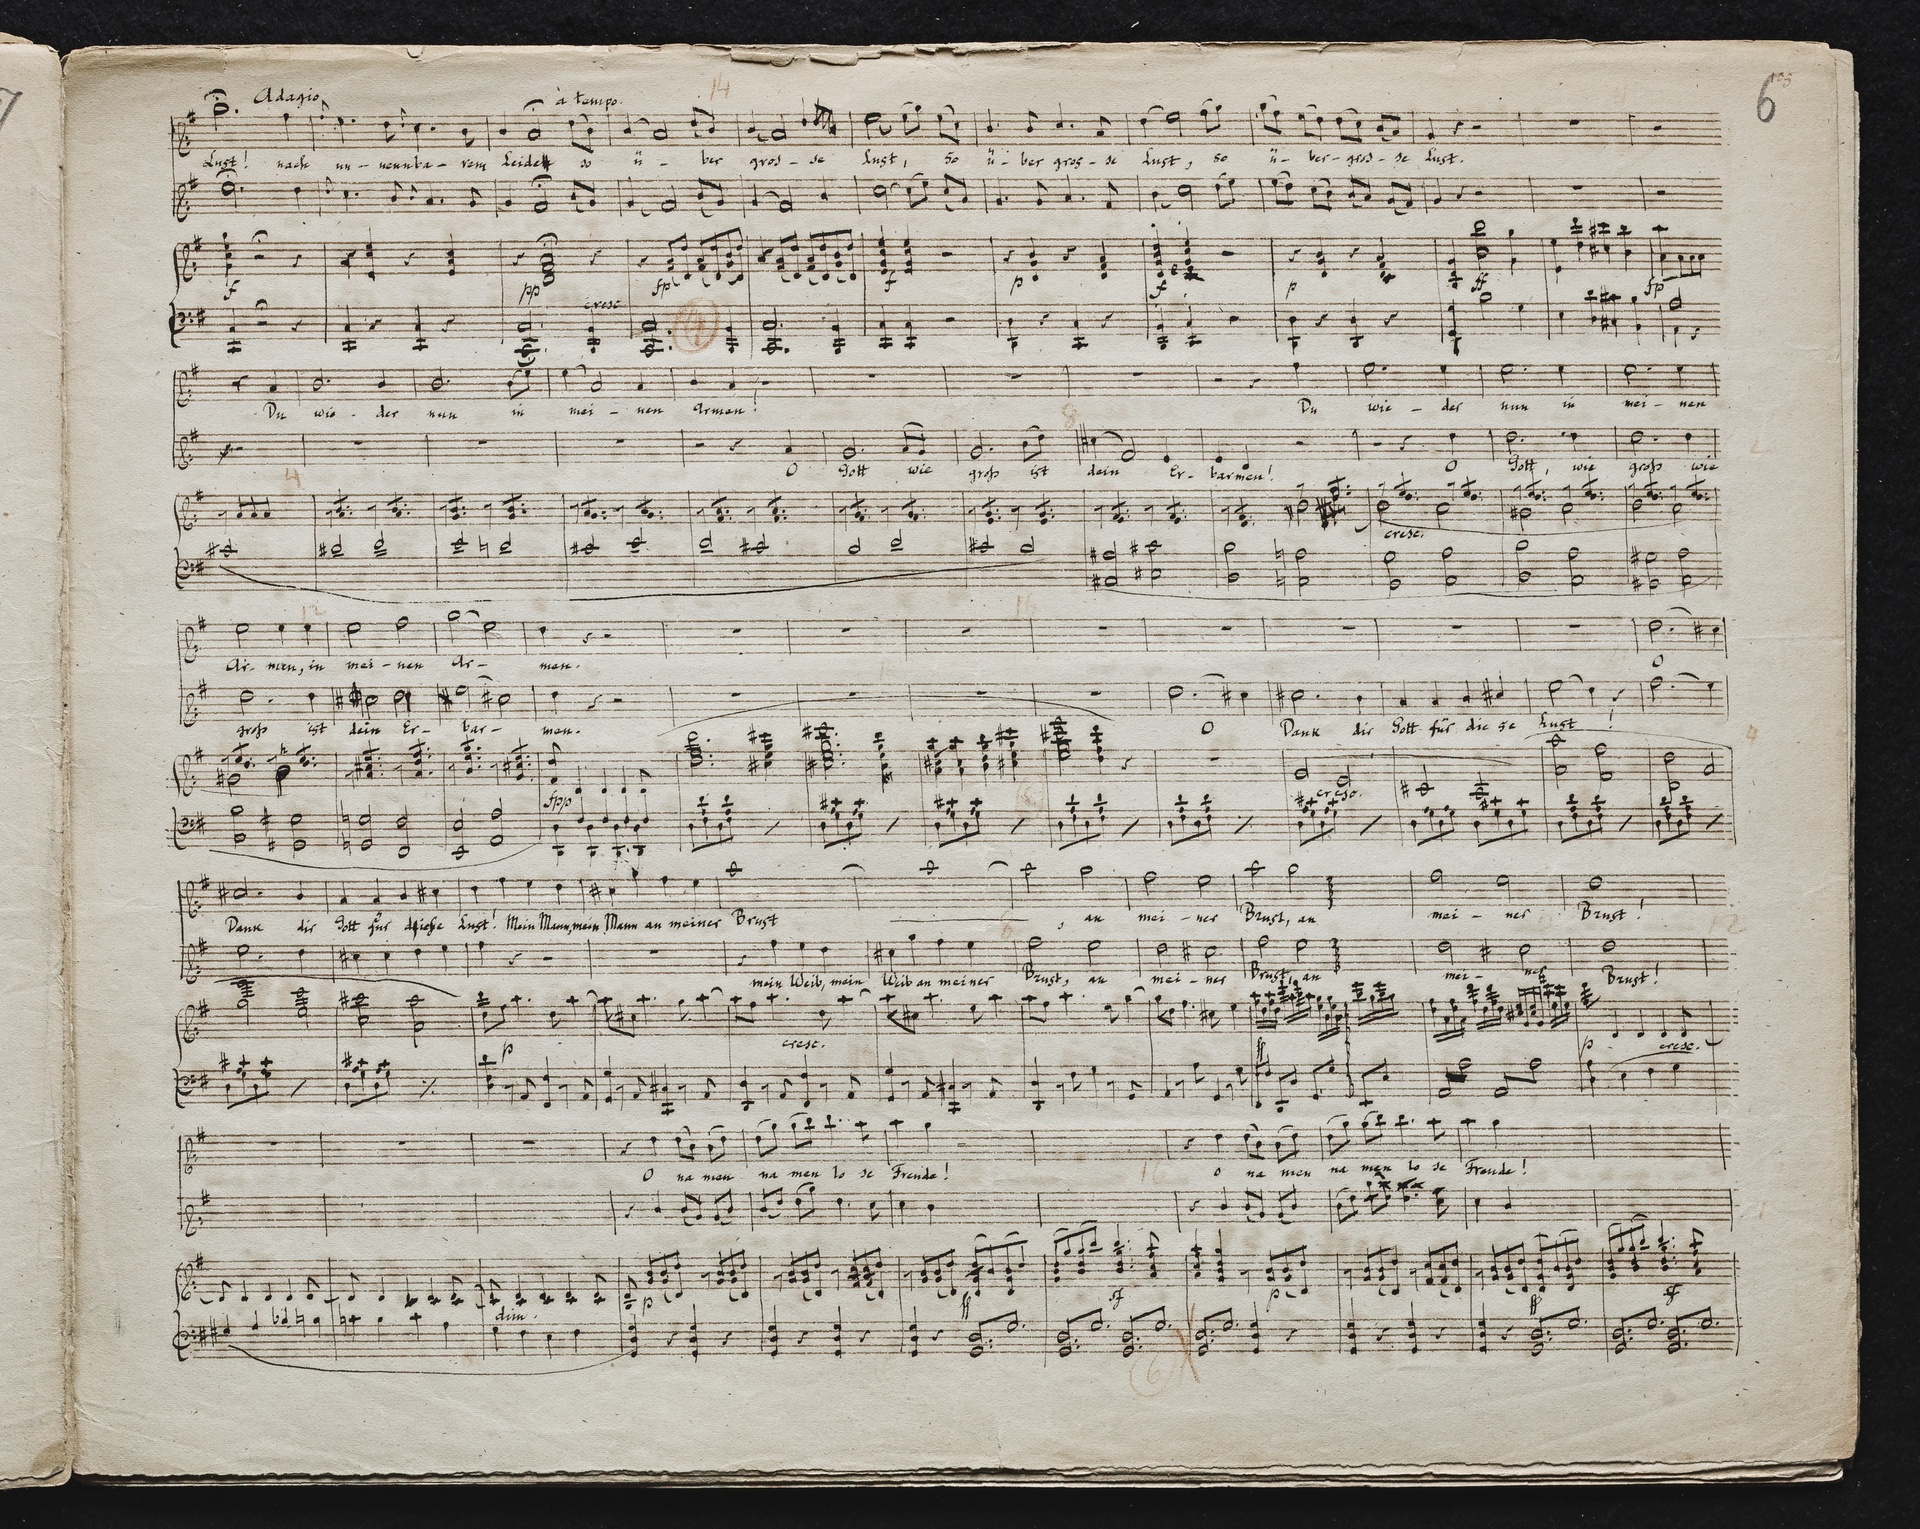 6
Adagio à tempo. 14
Lust! nach un - nennba - rem Leiden so ü - ber gros - se Lust, So ü - ber gros - se Lust, so ü - ber - gros - se Lust.
f pp fp f p f p ff fp
cresc.
Du wie - der nun in mei - nen Armen! Du wie - der nun in mei - nen
8
O Gott wie groß ist dein Er - barmen! O Gott, wie groß wie
4
cresc.
12
Ar - men, in mei - nen Ar - men. O
groß ist dein Er - bar - men. O Dank dir Gott für die se Lust!
fpp cresc.
Dank dir Gott für diese Lust! Mein Mann, mein Mann an meiner Brust , an mei - ner Brust, an mei - ner Brust!
6
mein Weib, mein Weib an meiner Brust, an mei - ner Brust, an mei - ner Brust!
p cresc. ff p cresc.
O na men na men lo se Freude! o na men na men lo se Freude!
16
dim. p ff sf p ff sf
6